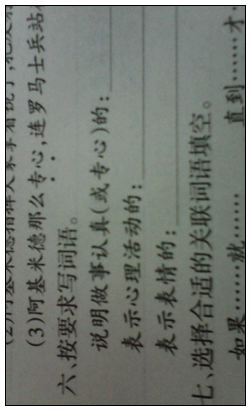 (3)阿基米德那么专心,连罗马士兵站
六、按要求写词语。
说明做事认真(或专心)的:
表示心理活动的:
表示表情的:
七、选择合适的关联词语填空。
如果……就…… 直到……才